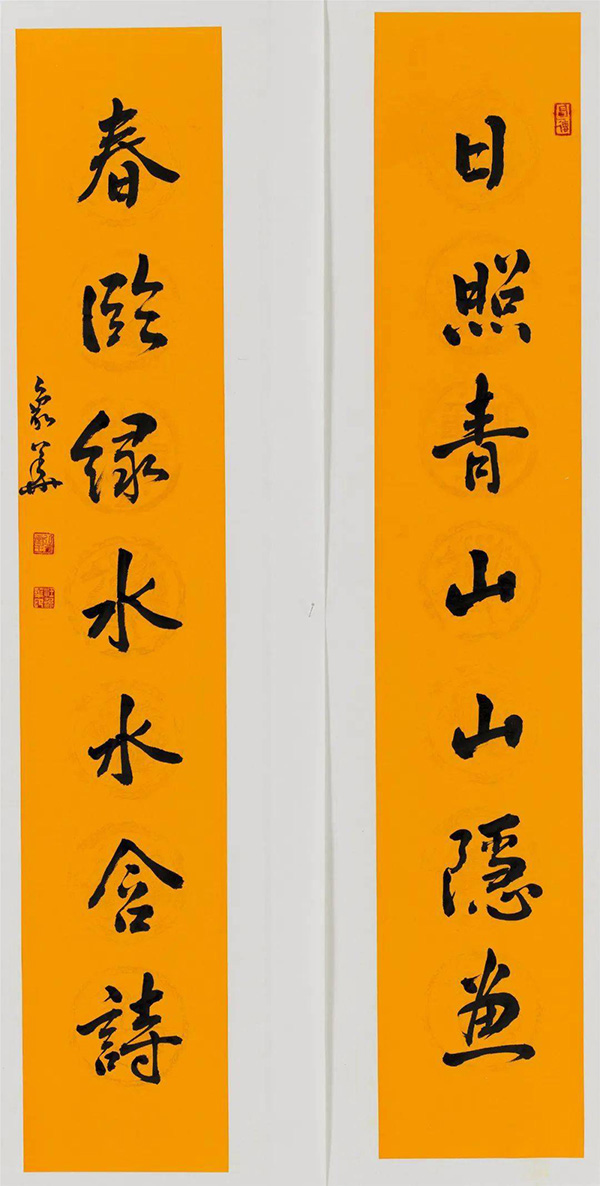 日照青山山隱畫
春臨綠水水含詩